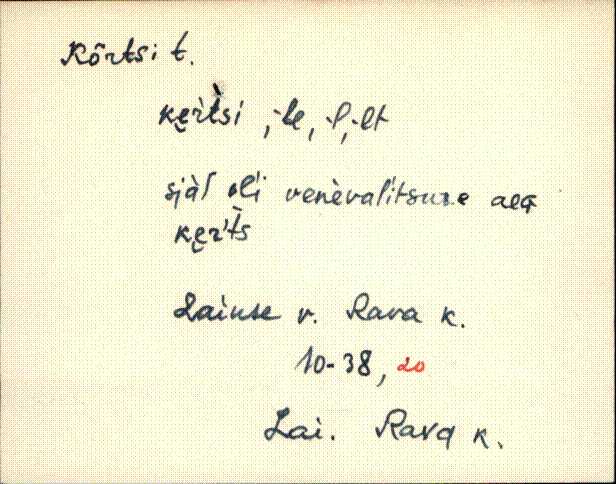 Kõrtsi t.
kę̀rtsi, -le, -l, -lt
sjàl oli venèvalitsuse aeg
kę̀rts
Laiuse v. Rava k.
10-38, 20
Lai. Rava k.